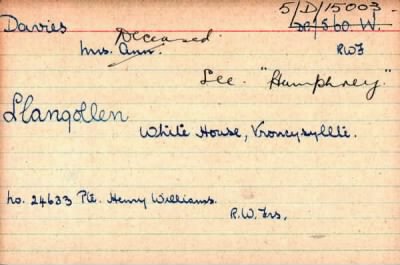 5/D/15003.
Davies
Deceased.
20/560. W.
Mrs. Ann.
RWF
See. "Humphrey."
Llangollen
White House, Vroncysyllte.
No. 24633 Pte. Henry Williams.
R.W. Frs.